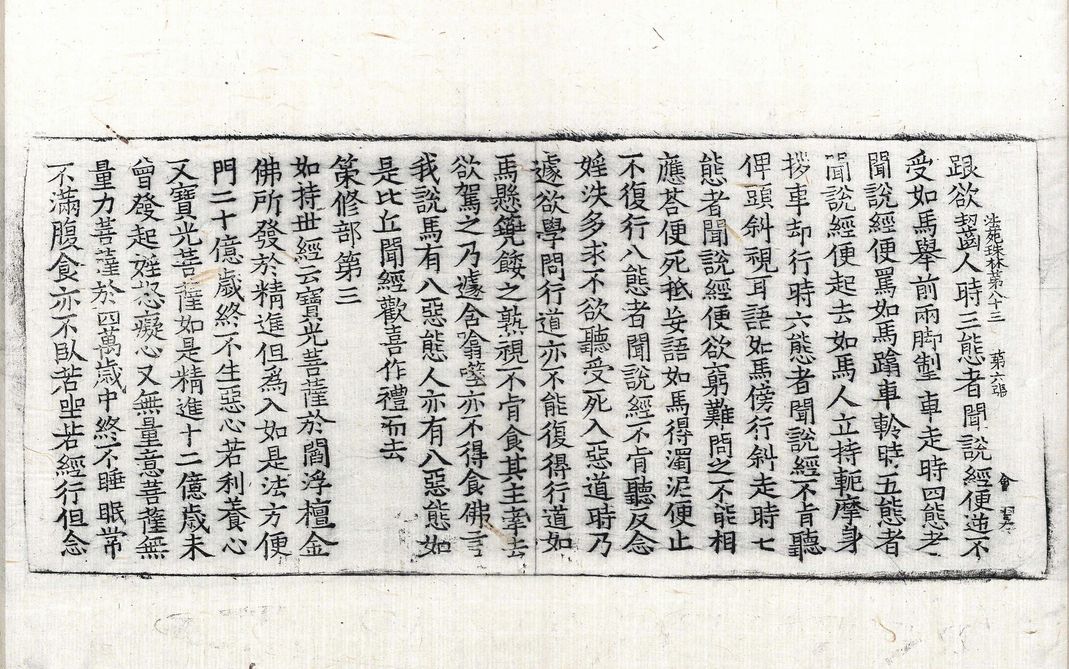 跟欲齧人時三態者聞說經便逆不
法苑珠林第八十三 第六張 會
受如馬舉前兩脚掣車走時四態者
聞說經便罵如馬蹹車軨時五態者
聞說經便起去如馬人立持軛摩身
拶車却行時六態者聞說經不肯聽
俾頭斜視耳語如馬傍行斜走時七
態者聞說經便欲窮難問之不能相
應荅便死抵妄語如馬得濁泥便止
不復行八態者聞說經不肯聽反念
婬泆多求不欲聽受死入惡道時乃
遽欲學問行道亦不能復得行道如
馬懸篼餧之熟視不肯食其主牽去
欲駕之乃遽含噏噬亦不得食佛言
我說馬有八惡態人亦有八惡態如
是比丘聞經歡喜作禮而去
策修部第三
如持世經云寶光菩薩於閻浮檀金
佛所發於精進但爲入如是法方便
門二十億歲終不生惡心若利養心
又寶光菩薩如是精進十二億歲未
曾發起婬怒癡心又無量意菩薩無
量力菩薩於四萬歲中終不睡眠常
不滿腹食亦不臥若坐若經行但念